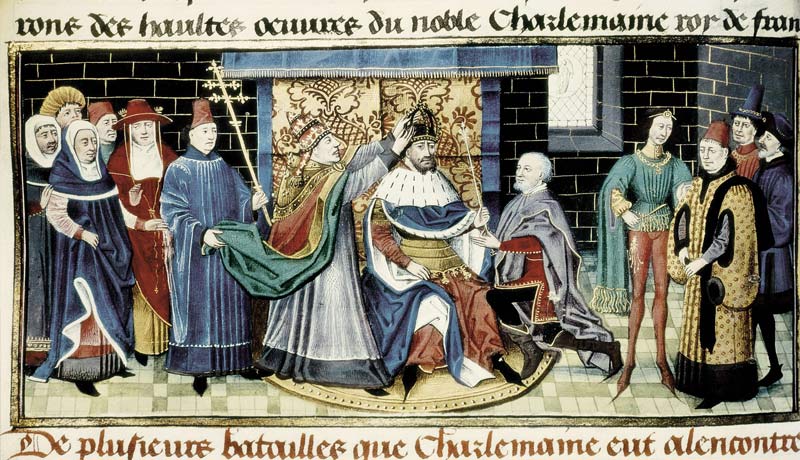 rons des haultes oeuvres du noble Charlemaine roy de fran
De plusieurs batailles que Charlemaine eut alencontre